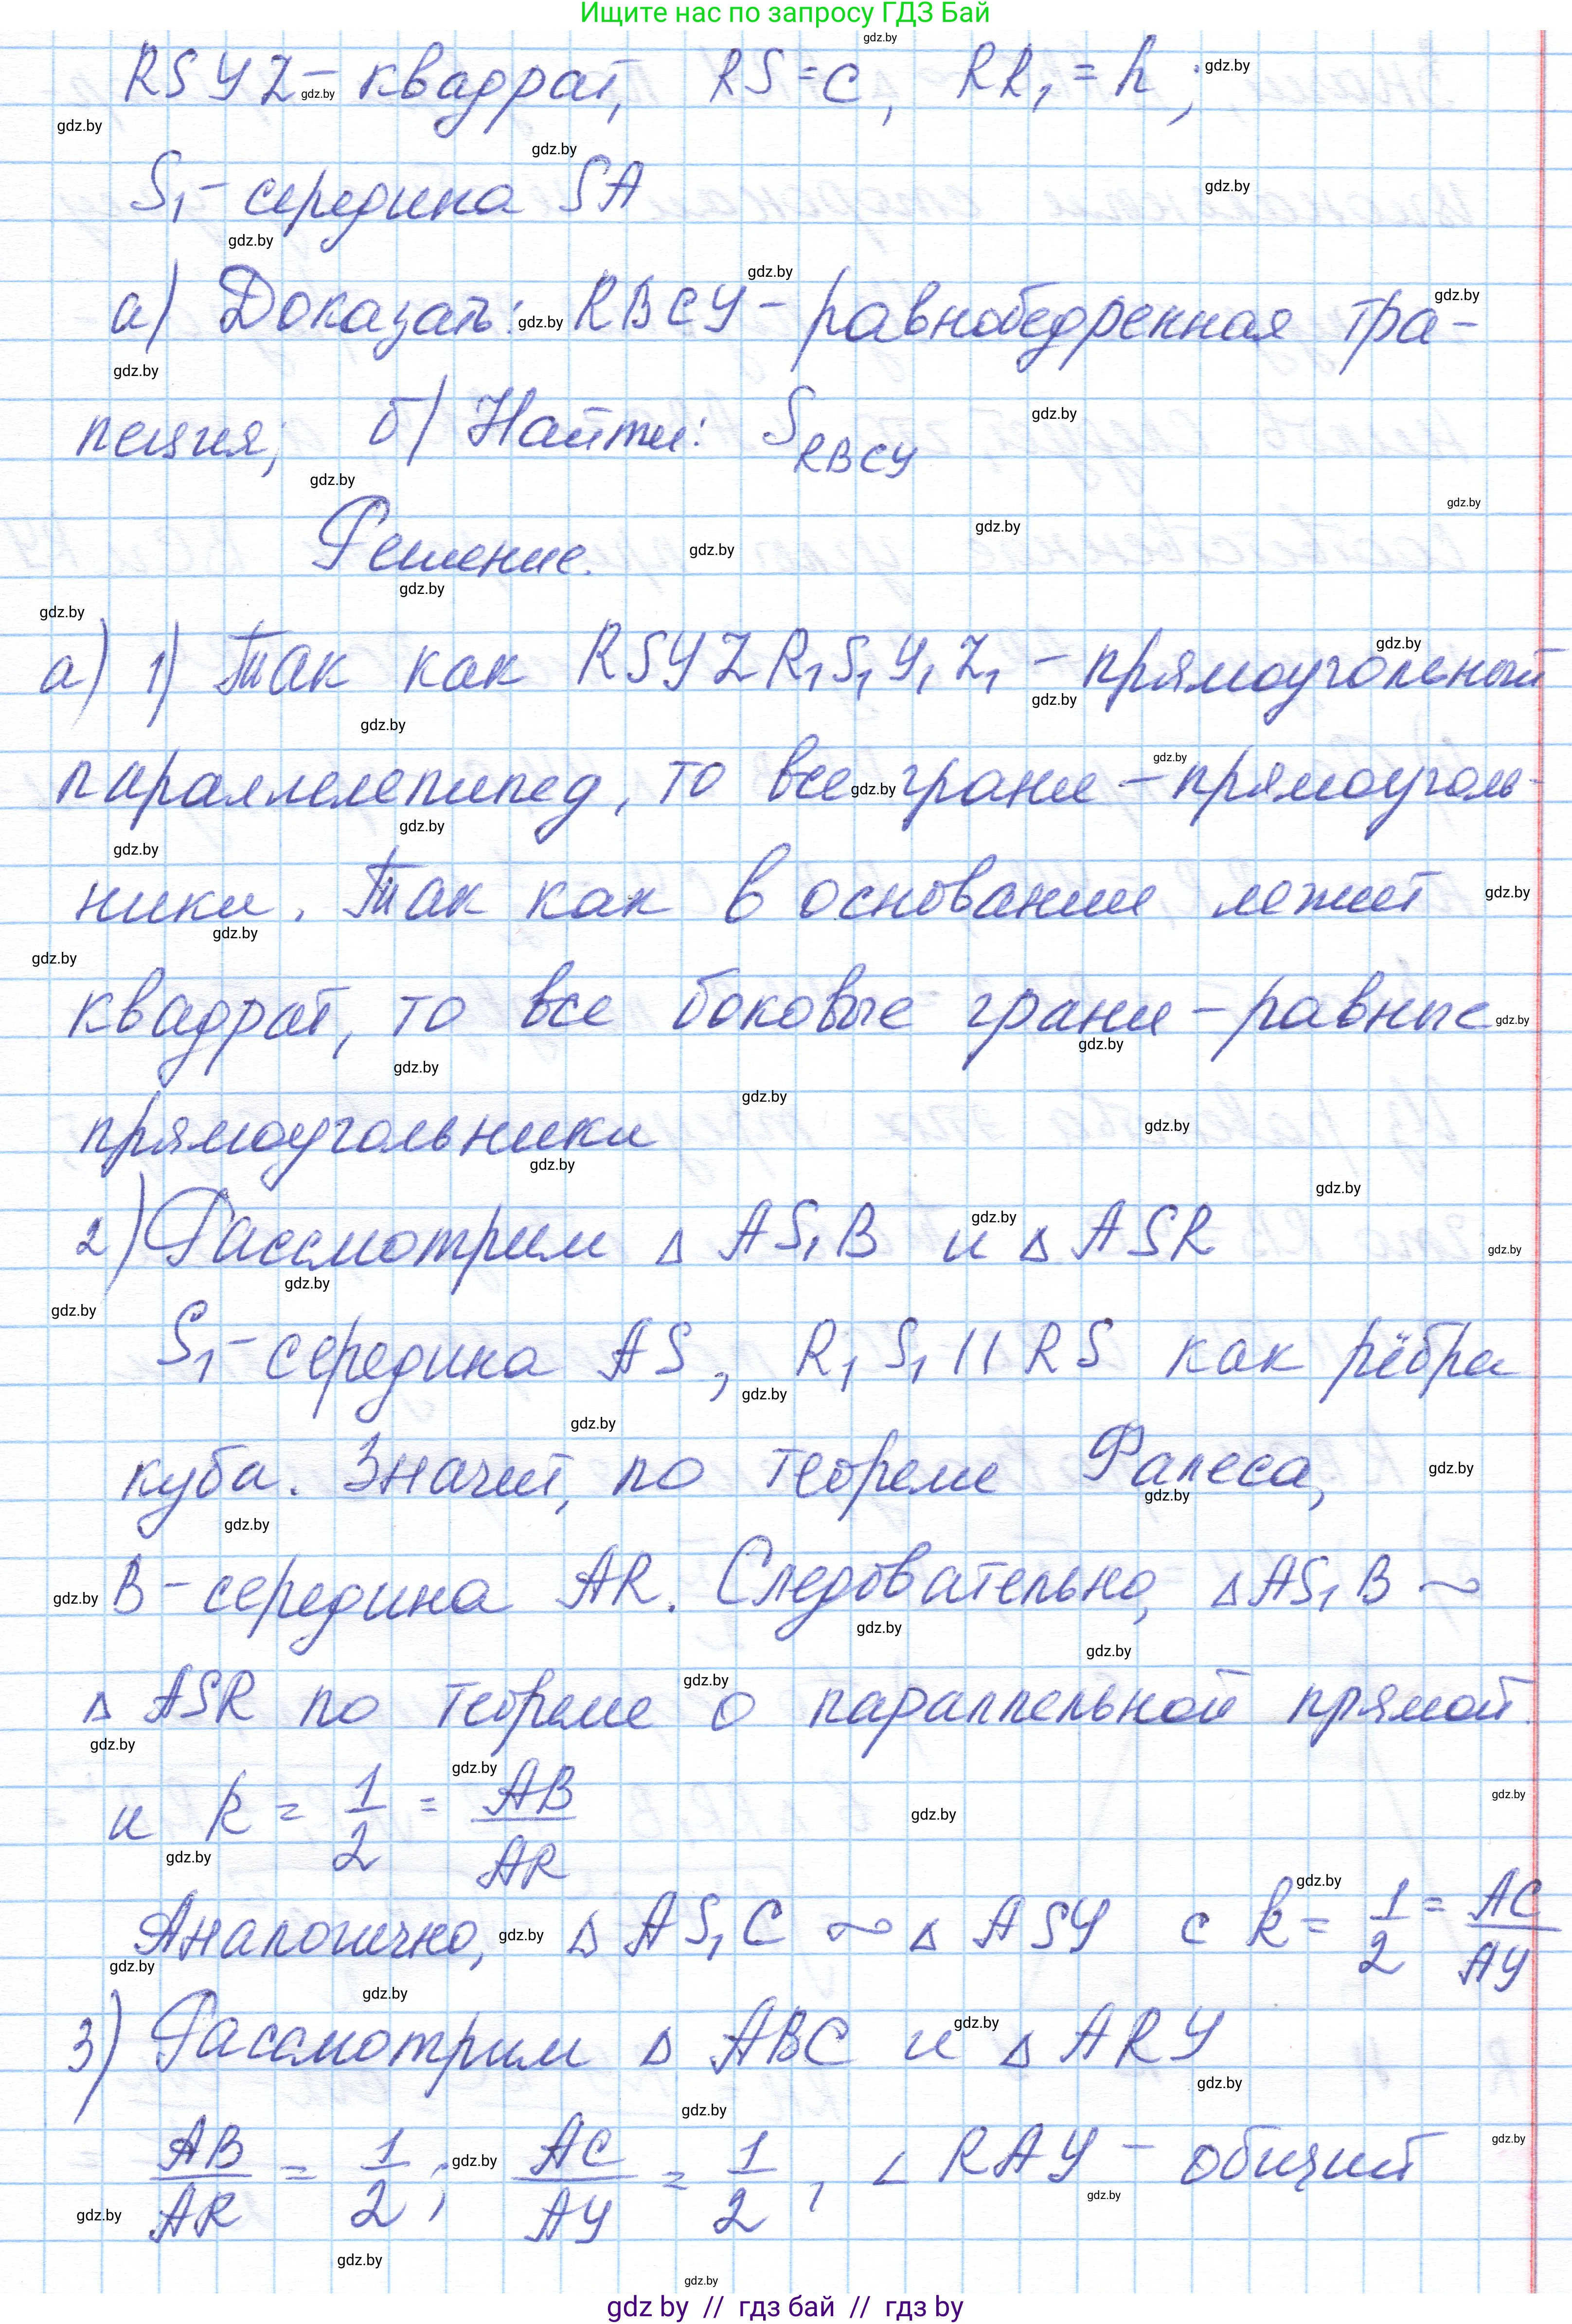 Ищите нас по запросу ГДЗ Бай
RSYZ - квадрат, RS = c, RR₁ = h;
S₁ - середина SA
а) Доказать: RBCY - равнобедренная тра-
пеция; б) Найти: S_RBCY
Решение.
а) 1) Так как RSYZR₁S₁Y₁Z₁ - прямоугольный
параллелепипед, то все грани - прямоуголь-
ники. Так как в основании лежит
квадрат, то все боковые грани - равные
прямоугольники
2) Рассмотрим △ AS₁B и △ ASR
S₁ - середина AS, R₁S₁ || RS как рёбра
куба. Значит, по теореме Фалеса,
B - середина AR. Следовательно, △AS₁B ∼
△ ASR по теореме о параллельной прямой.
и k = 1/2 = AB/AR
Аналогично, △ AS₁C ∼ △ ASY с k = 1/2 = AC/AY
3) Рассмотрим △ ABC и △ ARY
AB/AR = 1/2; AC/AY = 1/2, ∠ RAY - общий
gdz by // гдз бай // гдз by